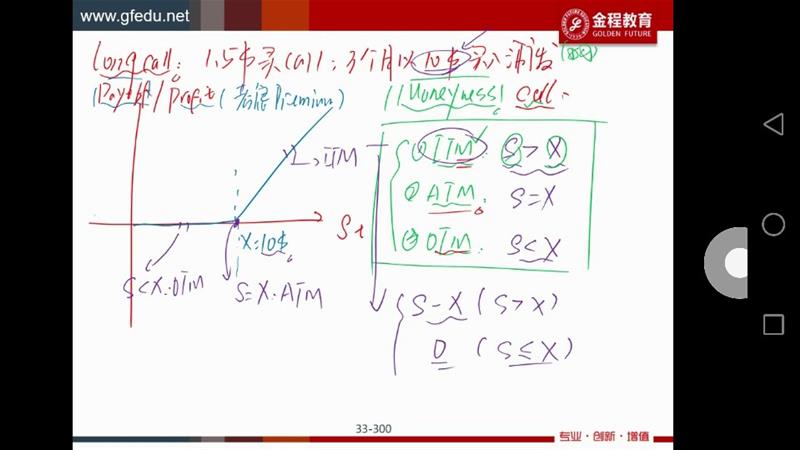 www.gfedu.net
金程教育
GOLDEN FUTURE
Long call: 1.5$买Call; 3个月以10$买入
Payoff/Profit(考虑Premium)
"Moneyness" Call.
① ITM. S>X
② ATM. S=X
③ OTM. S<X
ITM
St
X=10$
S<X.OTM
S=X.ATM
S-X (S>X)
0 (S≤X)
33-300
专业·创新·增值